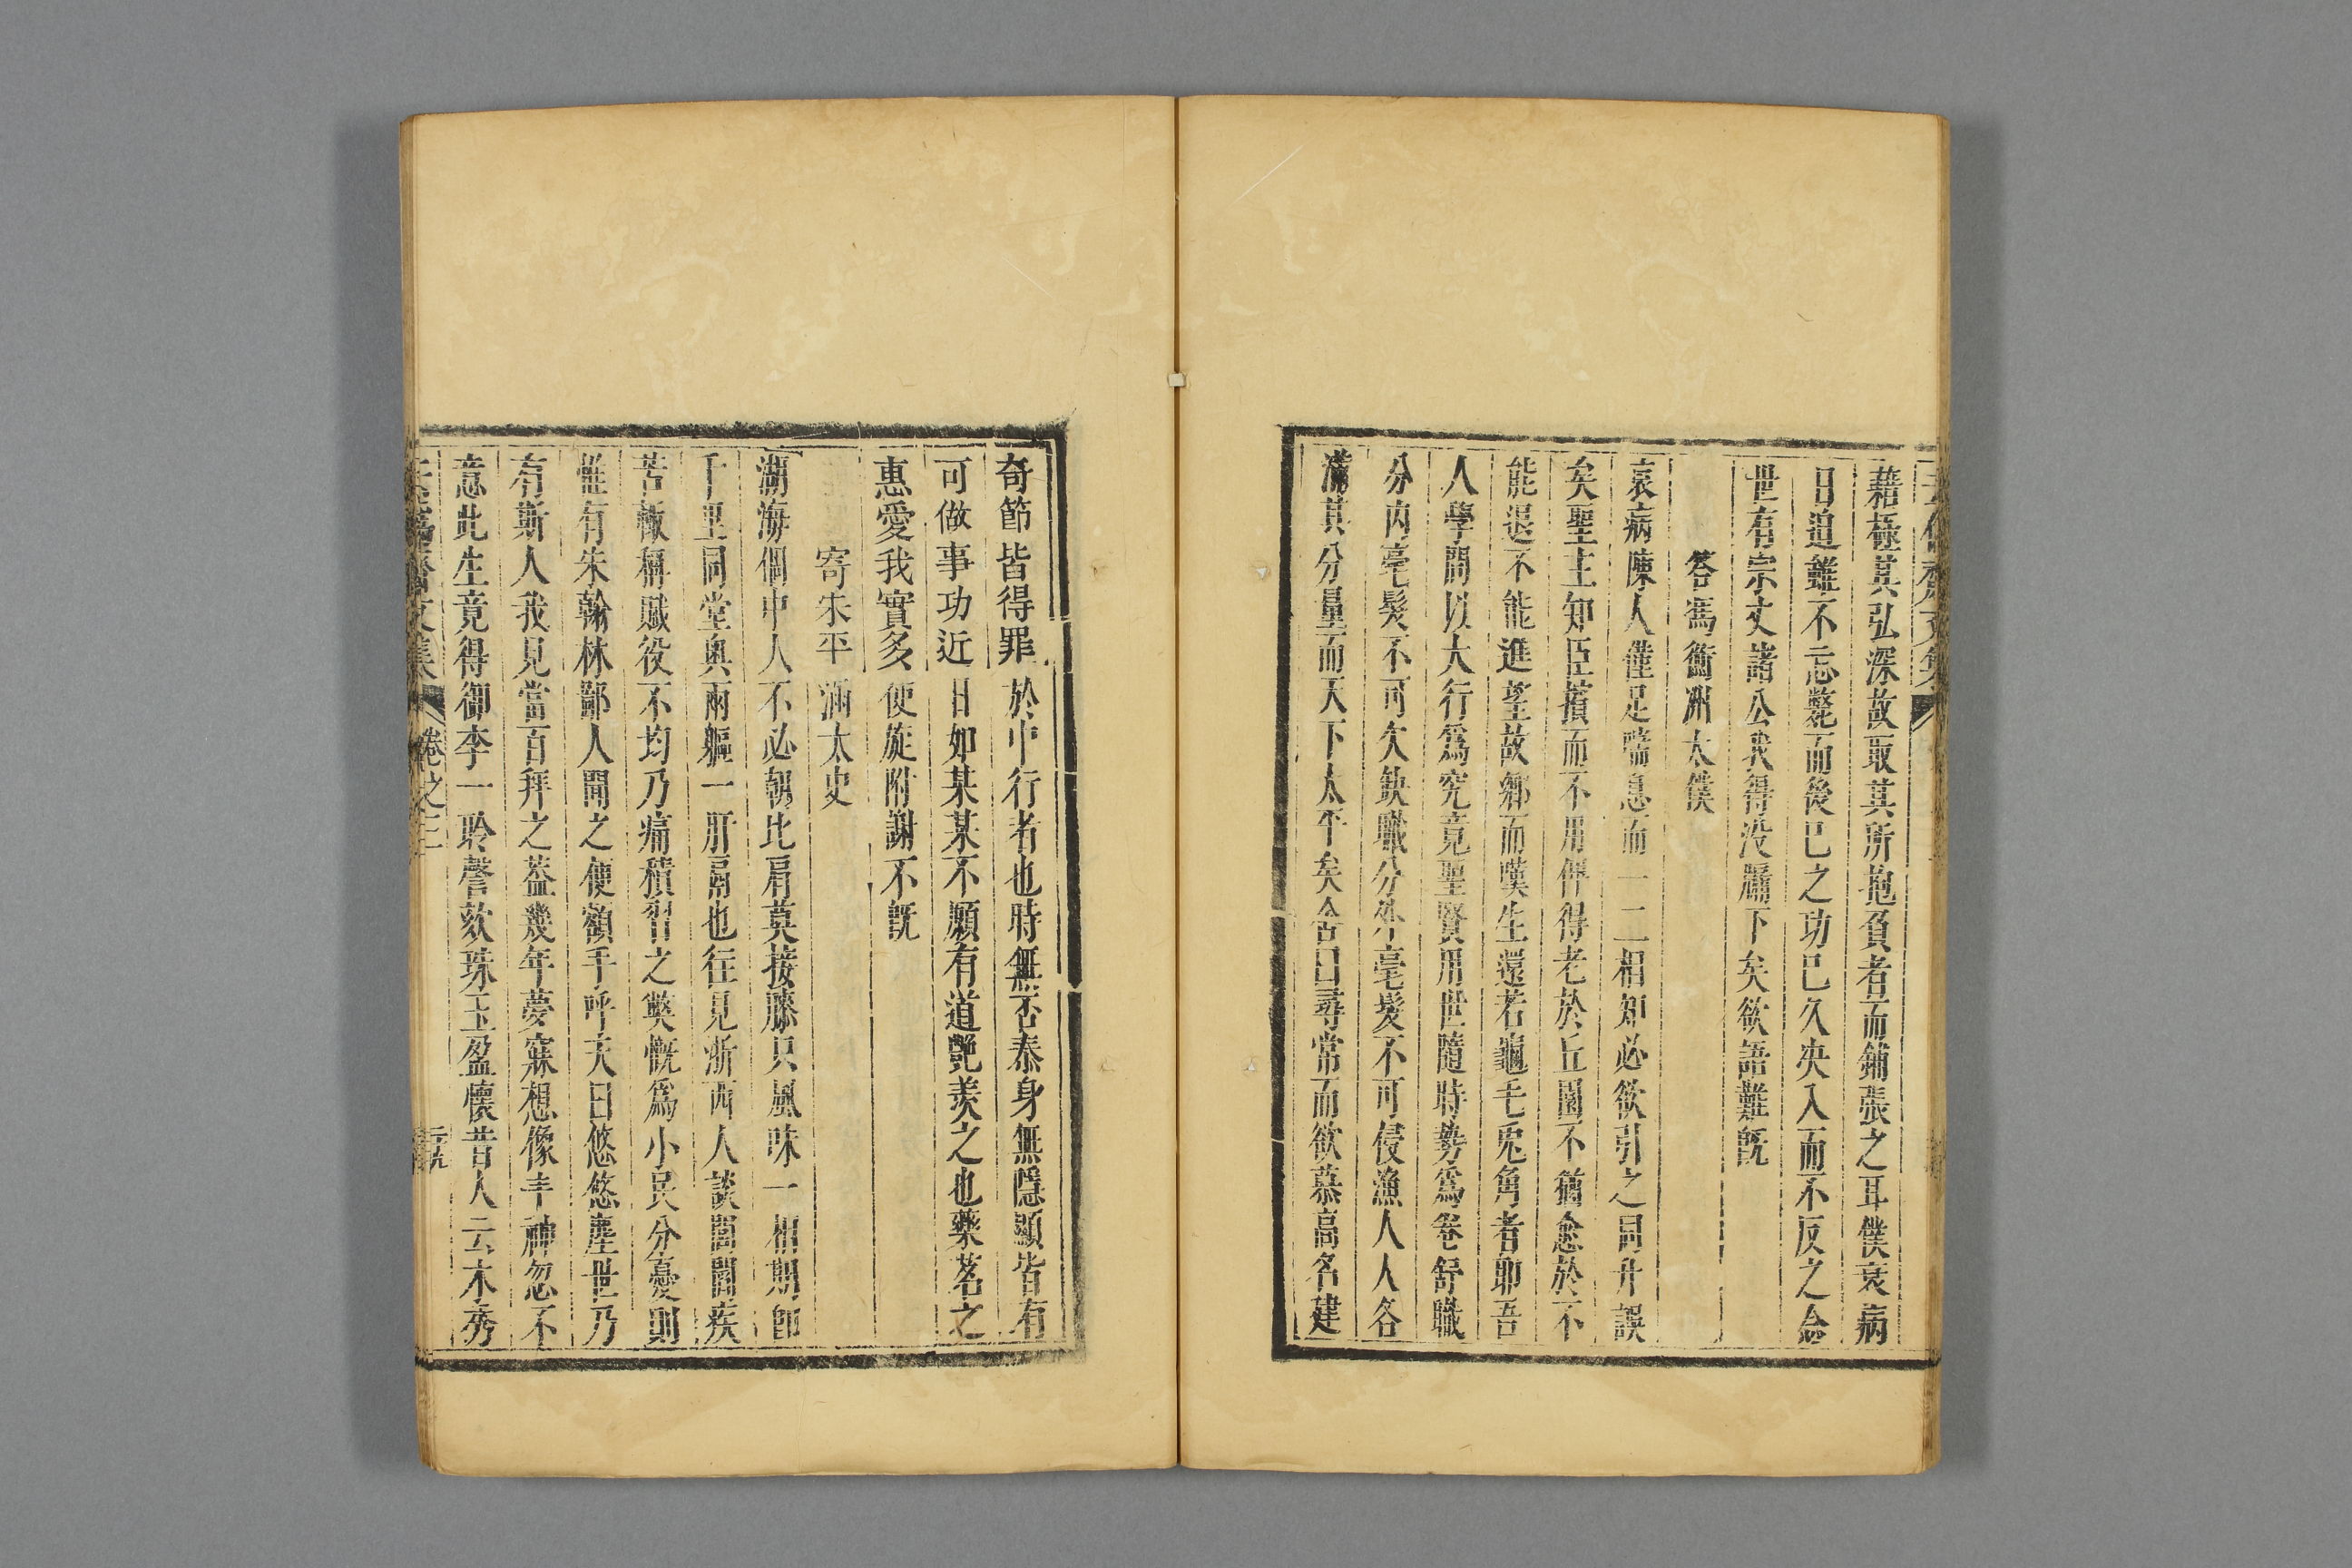 藉極其弘深故取其所抱負者而鋪張之耳僕衰病
日追雖不忘斃而後已之功已久夬入而不反之念
世有宗丈諸公我得没牖下矣欲語難旣
答馮衡洲太僕
衰病陳人僅足喘息而一二相知必欲引之同升誤
矣聖主知臣擯而不用俾得老於丘園不猶愈於不
能退不能進望故鄉而嘆生還若龜毛兎角者耶吾
人學問以大行爲究竟聖賢用世隨時勢爲卷舒職
分内毫髮不可欠缺職分外毫髮不可侵漁人人各
滿其分量而天下太平矣舍曰尋常而欲慕高名建
奇節皆得罪於中行者也時無否泰身無隱顯皆有
可做事功近日如某某不願有道艷羨之也藥茗之
惠愛我實多便旋附謝不旣
寄朱平涵太史
湖海個中人不必朝比肩莫接膝只風味一相期卽
千里同堂奥兩軀一肝鬲也往見浙西人談閭閻疾
苦輙稱賦役不均乃痛積習之獘慨爲小民分憂則
惟有朱翰林鄙人聞之便額手呼天曰悠悠塵世乃
有斯人我見當百拜之葢幾年夢寐想像丰神忽不
意此生竟得御李一聆謦欬珠玉盈懷昔人云木秀
卷之三